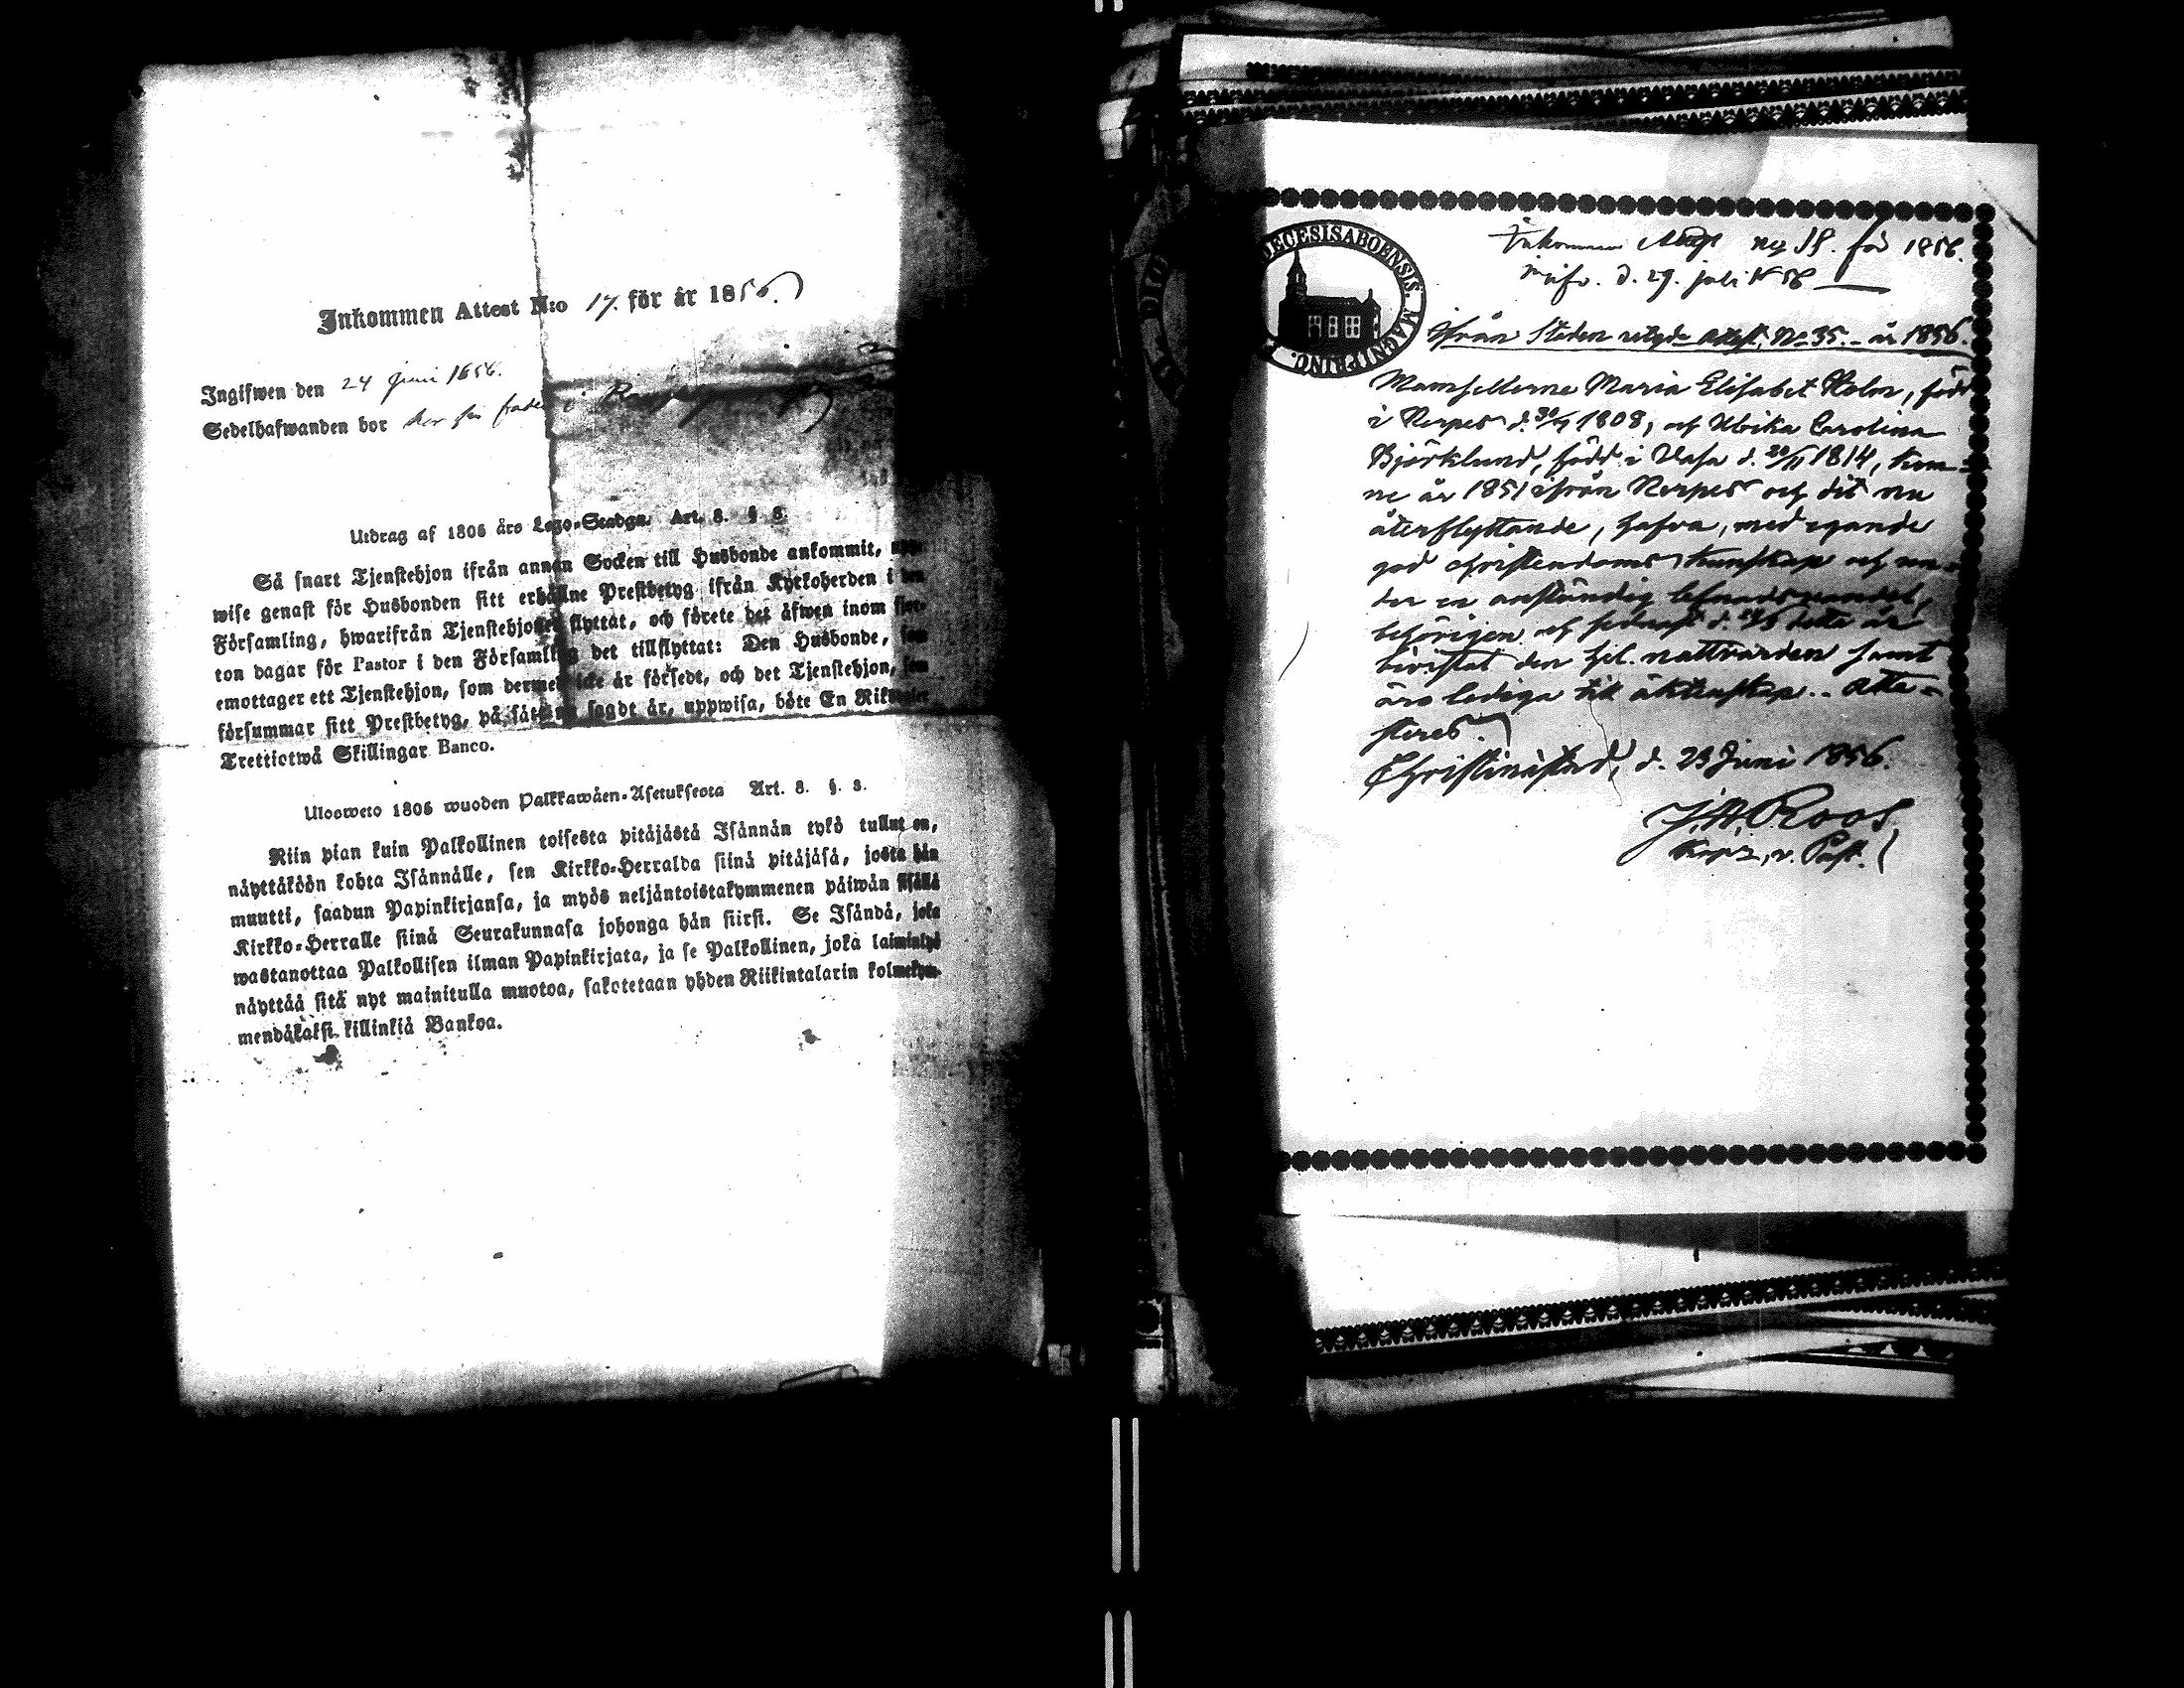 Inkommen Attest N:o 17. för år 1856.
Ingifwen den 24 juni 1856.
Sedelhafwanden bor hos sin fader i
Utdrag af 1805 års Lego-Stadga. Art. 8. § 8.
Så snart Tjenstehjon ifrån annan Socken till Husbonde ankommit, upp-
wise genast för Husbonden sitt erhållne Prestbetyg ifrån Kyrkoherden i den
Församling, hwarifrån Tjenstehjonet flyttat, och förete det äfwen inom fjor-
ton dagar för Pastor i den Församling det tillflyttat: Den Husbonde, som
emottager ett Tjenstehjon, som dermed icke är försedt, och det Tjenstehjon, som
försummar sitt Prestbetyg, på sätt nu sagdt är, uppwisa, böte En Riksdaler
Trettiotwå Skillingar Banco.
Ulosweto 1805 wuoden Palkkawäen-Asetuksesta Art. 8. §. 8.
Niin pian kuin Palkollinen toisesta pitäjästä Isännän tykö tullut on,
näyttäköön kohta Isännälle, sen Kirkko-Herralda siinä pitäjäsä, josta hän
muutti, saadun Papinkirjansa, ja myös neljäntoistakymmenen päiwän sisällä
Kirkko-Herralle siinä Seurakunnasa johonga hän siirsi. Se Isändä, joka
wastanottaa Palkollisen ilman Papinkirjata, ja se Palkollinen, joka laiminlyö
näyttää sitä nyt mainitulla muotoa, sakotetaan yhden Riikintalarin kolmekym-
mendäkaksi killinkiä Bankoa.
DECESISABOENSIS. MAGNI PRINC.
Inkommen Attest N:o 18. för 1856.
ingifv. d. 29. juli 1856
Ifrån Staden utgifv. attest, No 35. - år 1856.
Mamsellerne Maria Elisabet Holm, född
i Nerpes d. 30/7 1808, och Ulrika Carolina
Björklund, född i Vasa d. 20/11 1814, kom-
ne år 1851 ifrån Nerpes och dit nu
återflyttande, hafva, med egande
god christendoms kunskap och un-
der en anständig lefnadsvandel,
behörigen och senast d. detta år
bivistat den hel. nattvarden samt
äro lediga till äktenskap. Atte-
steres.
Christinæstad, d. 23 Juni 1856.
J.A. Roos
Kapl., v. Past.